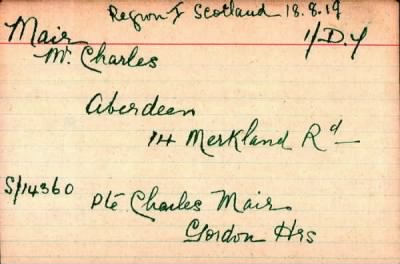 Region I Scotland 18.8.19
Mair 1/D.4
Mr. Charles
Aberdeen
14 Merkland Rd
S/14360
Pte Charles Mair
Gordon Hrs